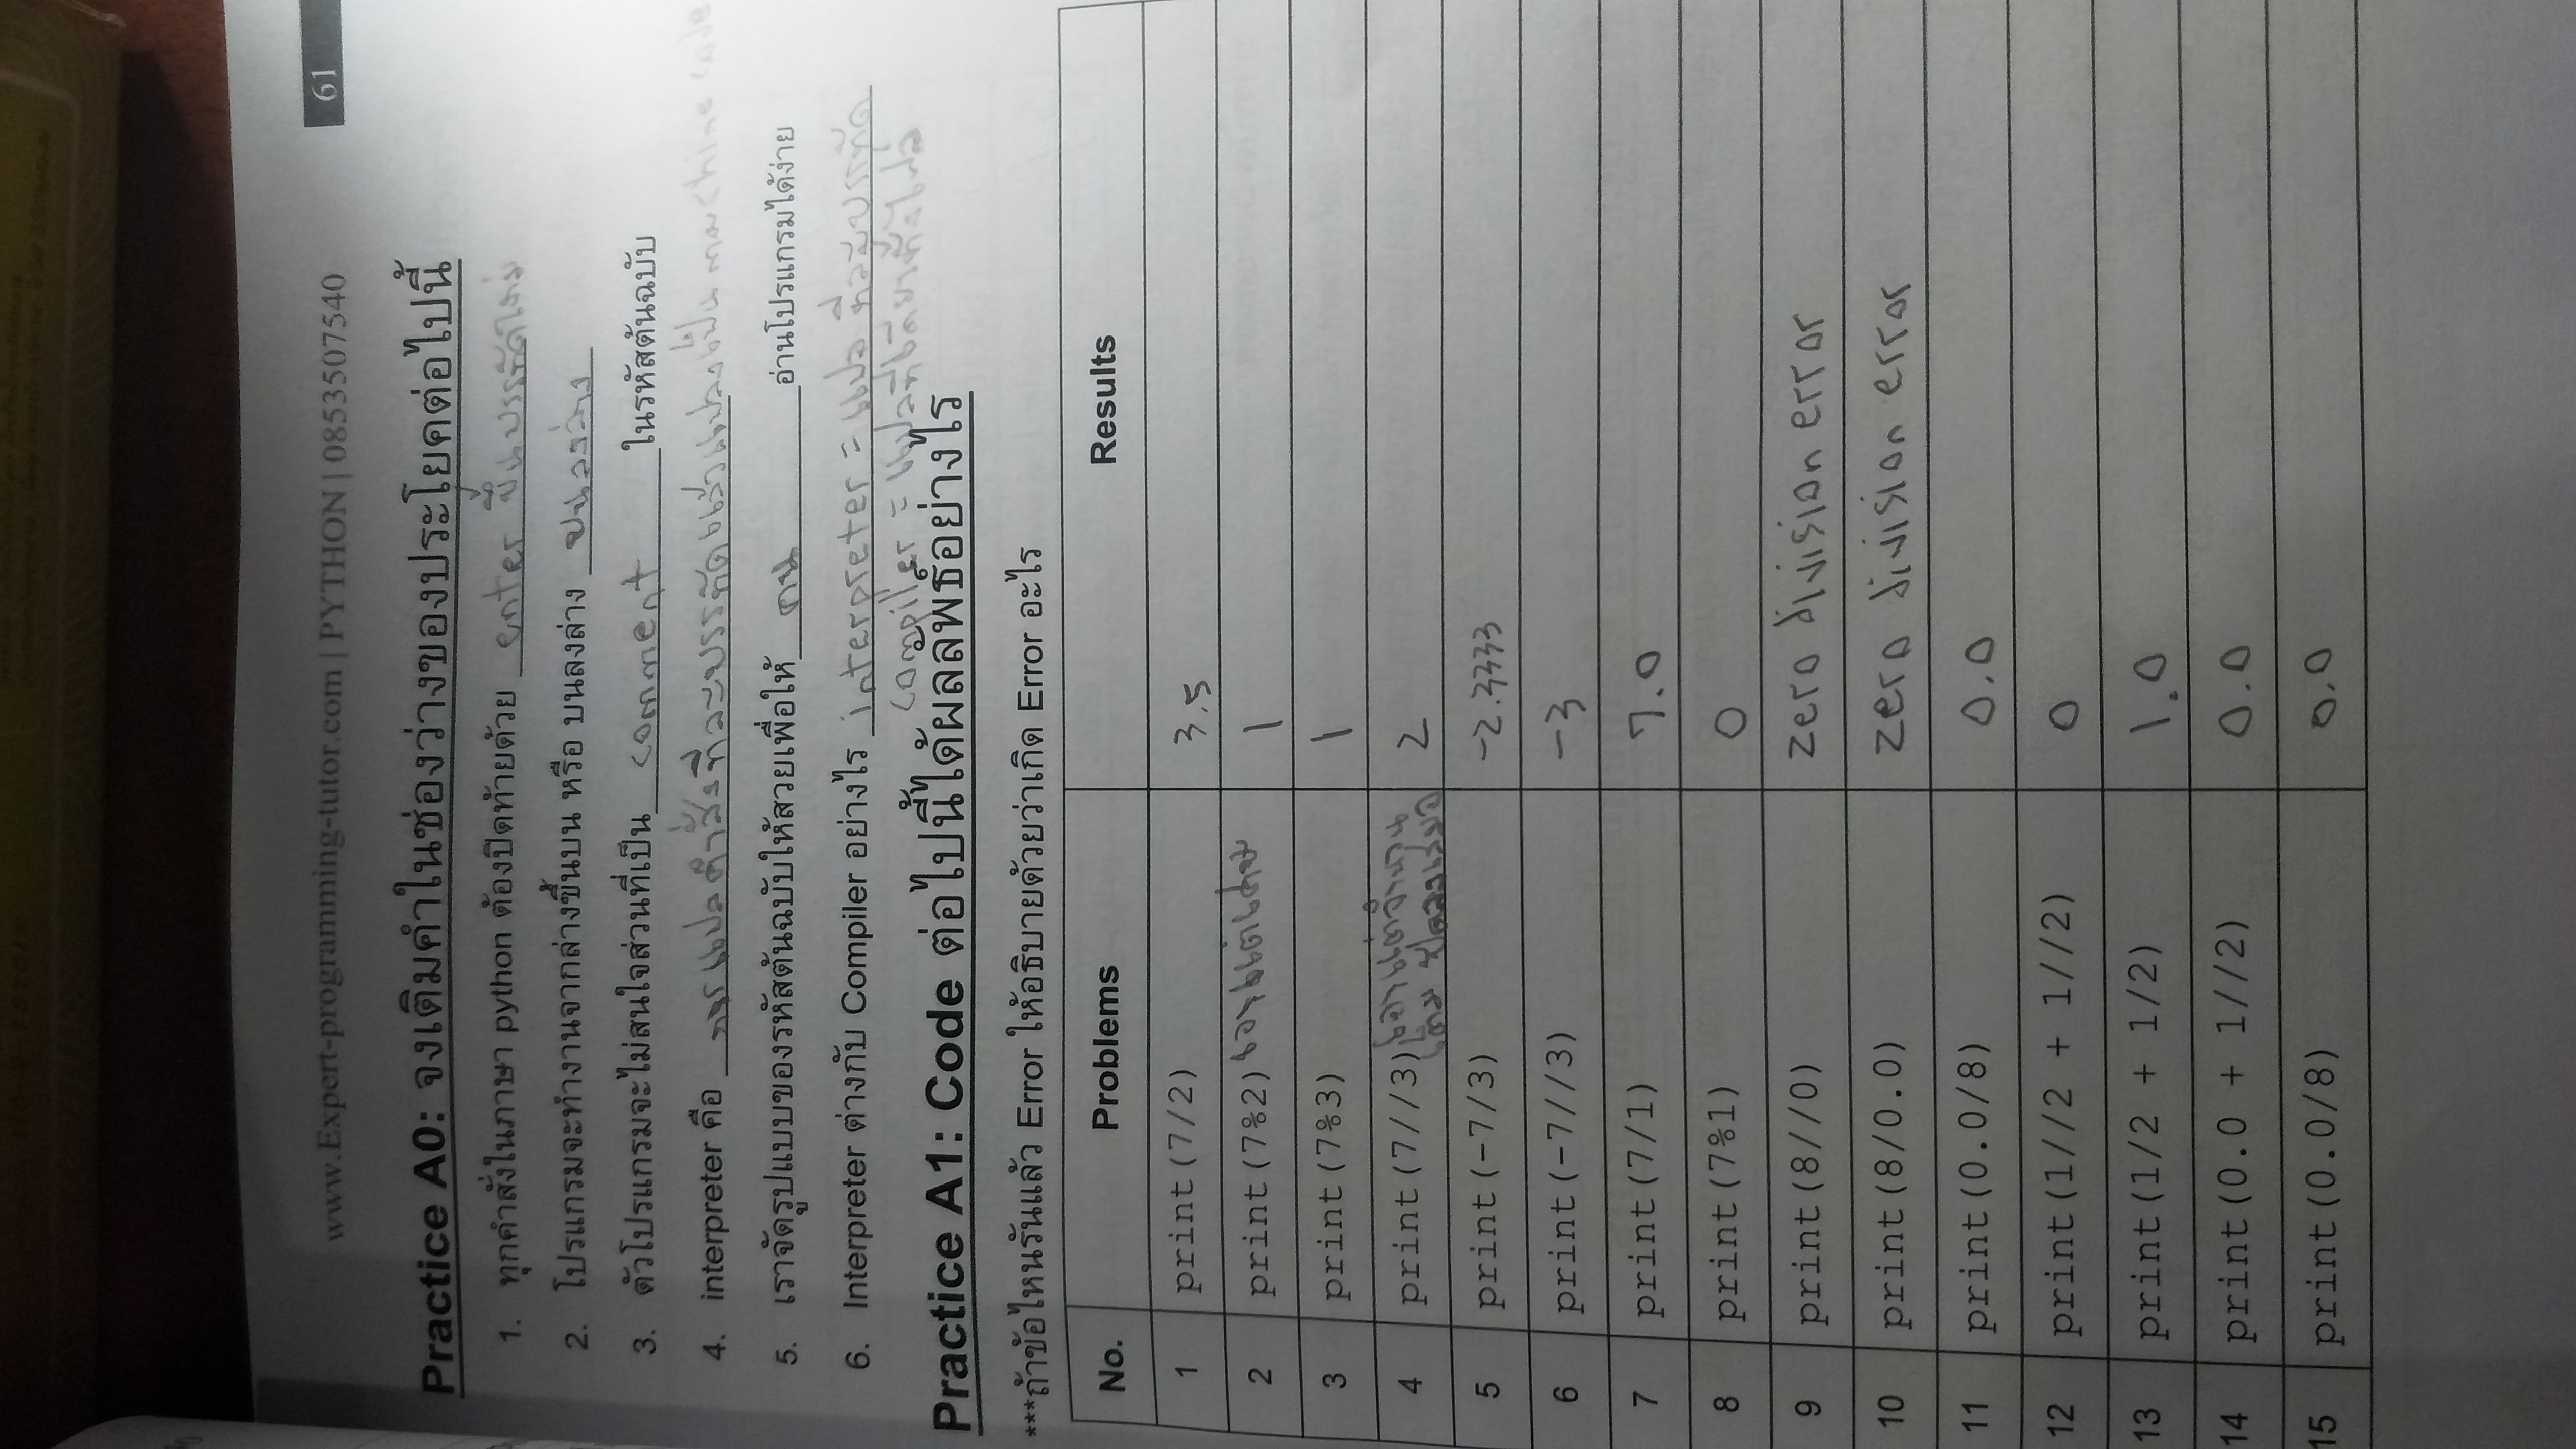 www.Expert-programming-tutor.com | PYTHON | 0853507540 61
Practice A0: จงเติมคำในช่องว่างของประโยคต่อไปนี้
1. ทุกคำสั่งในภาษา python ต้องปิดท้ายด้วย enter ขึ้นบรรทัดใหม่
2. โปรแกรมจะทำงานจากล่างขึ้นบน หรือ บนลงล่าง บนลงล่าง
3. ตัวโปรแกรมจะไม่สนใจส่วนที่เป็น comment ในรหัสต้นฉบับ
4. interpreter คือ การแปลคำสั่งทีละบรรทัดแล้วแปลงเป็นภาษา machine code
5. เราจัดรูปแบบของรหัสต้นฉบับให้สวยเพื่อให้ คน อ่านโปรแกรมได้ง่าย
6. Interpreter ต่างกับ Compiler อย่างไร interpreter = แปลทีละบรรทัด
compiler = แปลทีเดียวทั้งไฟล์
Practice A1: Code ต่อไปนี้ได้ผลลัพธ์อย่างไร
***ถ้าข้อไหนรันแล้ว Error ให้อธิบายด้วยว่าเกิด Error อะไร
No. Problems Results
1 print(7/2) 3.5
2 print(7%2) เอาแต่เศษ 1
3 print(7%3) 1
4 print(7//3) เอาแต่จำนวนเต็ม 2
5 print(-7/3) -2.3333
6 print(-7//3) -3
7 print(7/1) 7.0
8 print(7%1) 0
9 print(8//0) zero division error
10 print(8/0.0) zero division error
11 print(0.0/8) 0.0
12 print(1//2 + 1//2) 0
13 print(1/2 + 1/2) 1.0
14 print(0.0 + 1//2) 0.0
15 print(0.0/8) 0.0